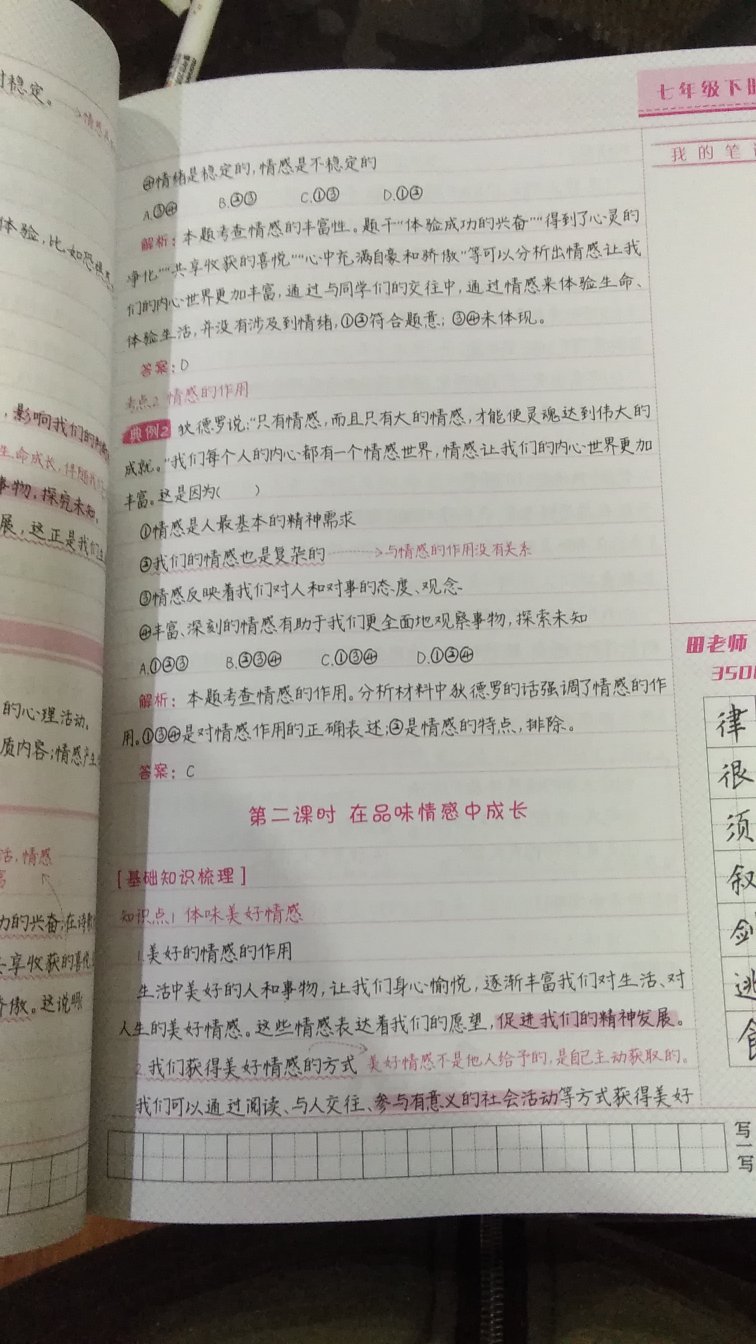 七年级下册
我的笔记
④情绪是稳定的,情感是不稳定的
A.③④ B.②③ C.①③ D.①②
解析:本题考查情感的丰富性。题干“体验成功的兴奋”“得到了心灵的
净化”“共享收获的喜悦”“心中充满自豪和骄傲”等可以分析出情感让我
们的内心世界更加丰富,通过与同学们的交往中,通过情感来体验生命、
体验生活,并没有涉及到情绪,①②符合题意;③④未体现。
答案:D
考点2 情感的作用
典例2 狄德罗说:“只有情感,而且只有大的情感,才能使灵魂达到伟大的
成就。”我们每个人的内心都有一个情感世界,情感让我们的内心世界更加
丰富。这是因为( )
①情感是人最基本的精神需求
②我们的情感也是复杂的 与情感的作用没有关系
③情感反映着我们对人和对事的态度、观念
④丰富、深刻的情感有助于我们更全面地观察事物,探索未知
A.①②③ B.②③④ C.①③④ D.①②④
解析:本题考查情感的作用。分析材料中狄德罗的话强调了情感的作
用。①③④是对情感作用的正确表述;②是情感的特点,排除。
答案:C
第二课时 在品味情感中成长
[基础知识梳理]
知识点1 体味美好情感
1.美好的情感的作用
生活中美好的人和事物,让我们身心愉悦,逐渐丰富我们对生活、对
人生的美好情感。这些情感表达着我们的愿望,促进我们的精神发展。
2.我们获得美好情感的方式 美好情感不是他人给予的,是自己主动获取的。
我们可以通过阅读、与人交往、参与有意义的社会活动等方式获得美好
田老师
350
律
很
须
叙
剑
逃
食
写一写
稳定。
体验,比如恐惧
,影响我们的
生命成长,伴随我
事物,探究未知,
展,这正是我们
的心理活动。
质内容;情感产生
活,情感
富
功的兴奋;在诗歌
共享收获的喜悦
骄傲。这说明